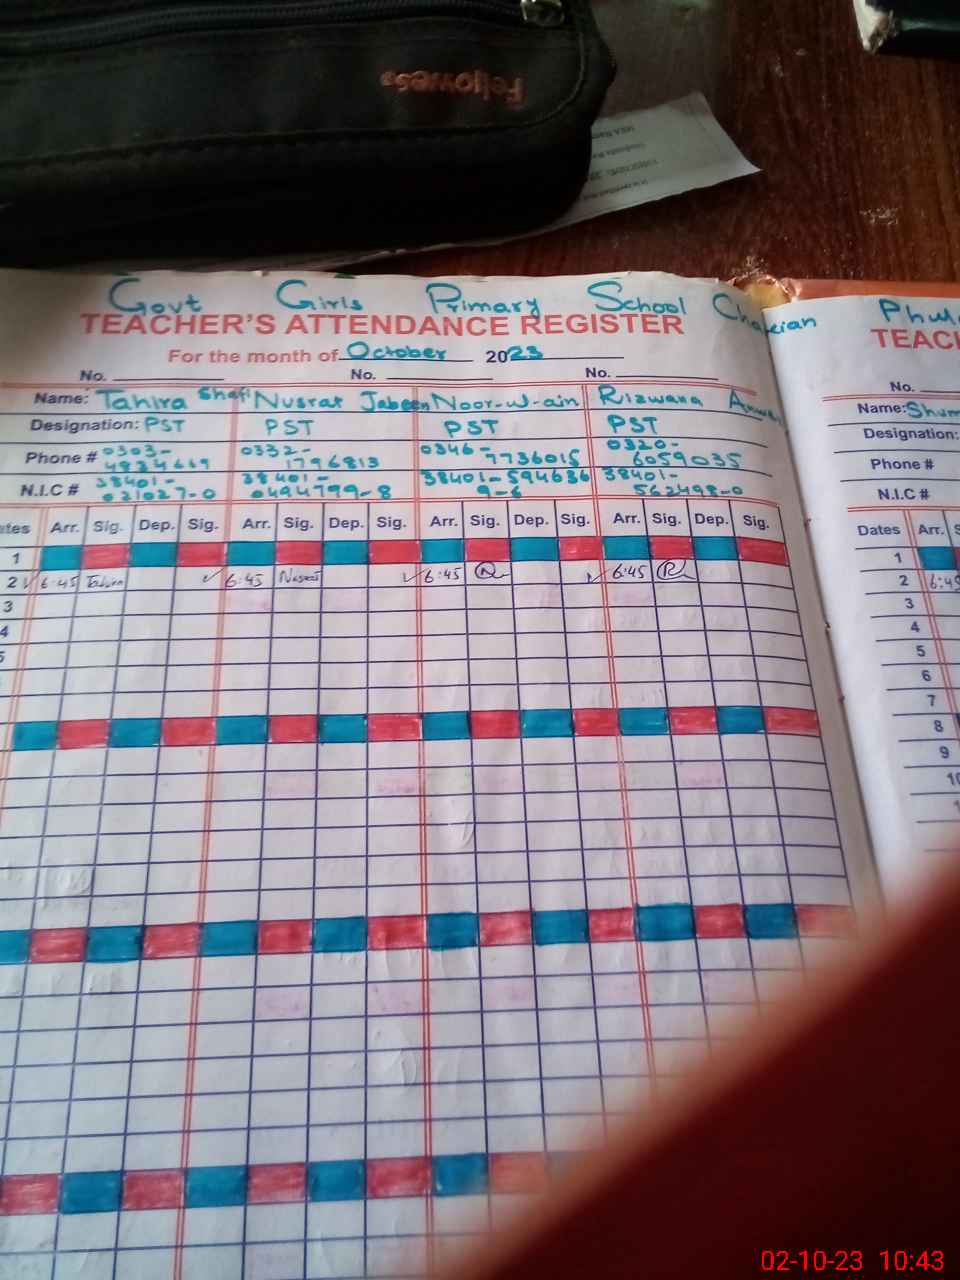 Fellowes
Govt Girls Primary School
TEACHER'S ATTENDANCE REGISTER
For the month of October 2023
No. No. No.
Name: Tahira Shafi Nusrat Jabeen Noor-ul-ain Rizwana
Designation: PST PST PST PST
Phone # 0303- 0332- 0346- 0320-
1796813 7736015 6059035
N.I.C # 38401- 38401- 38401-594636 38401-
021027-0 0494799-8 9-6 562498-0
Arr. Sig. Dep. Sig. Arr. Sig. Dep. Sig. Arr. Sig. Dep. Sig. Arr. Sig. Dep. Sig.
1
2 6:45 Tahira 6:45 Nusrat 6:45 6:45
3
4
5
No.
Name:
Designation:
Phone #
N.I.C #
Dates Arr.
1
2 6:45
3
4
5
6
7
8
9
10
02-10-23 10:43